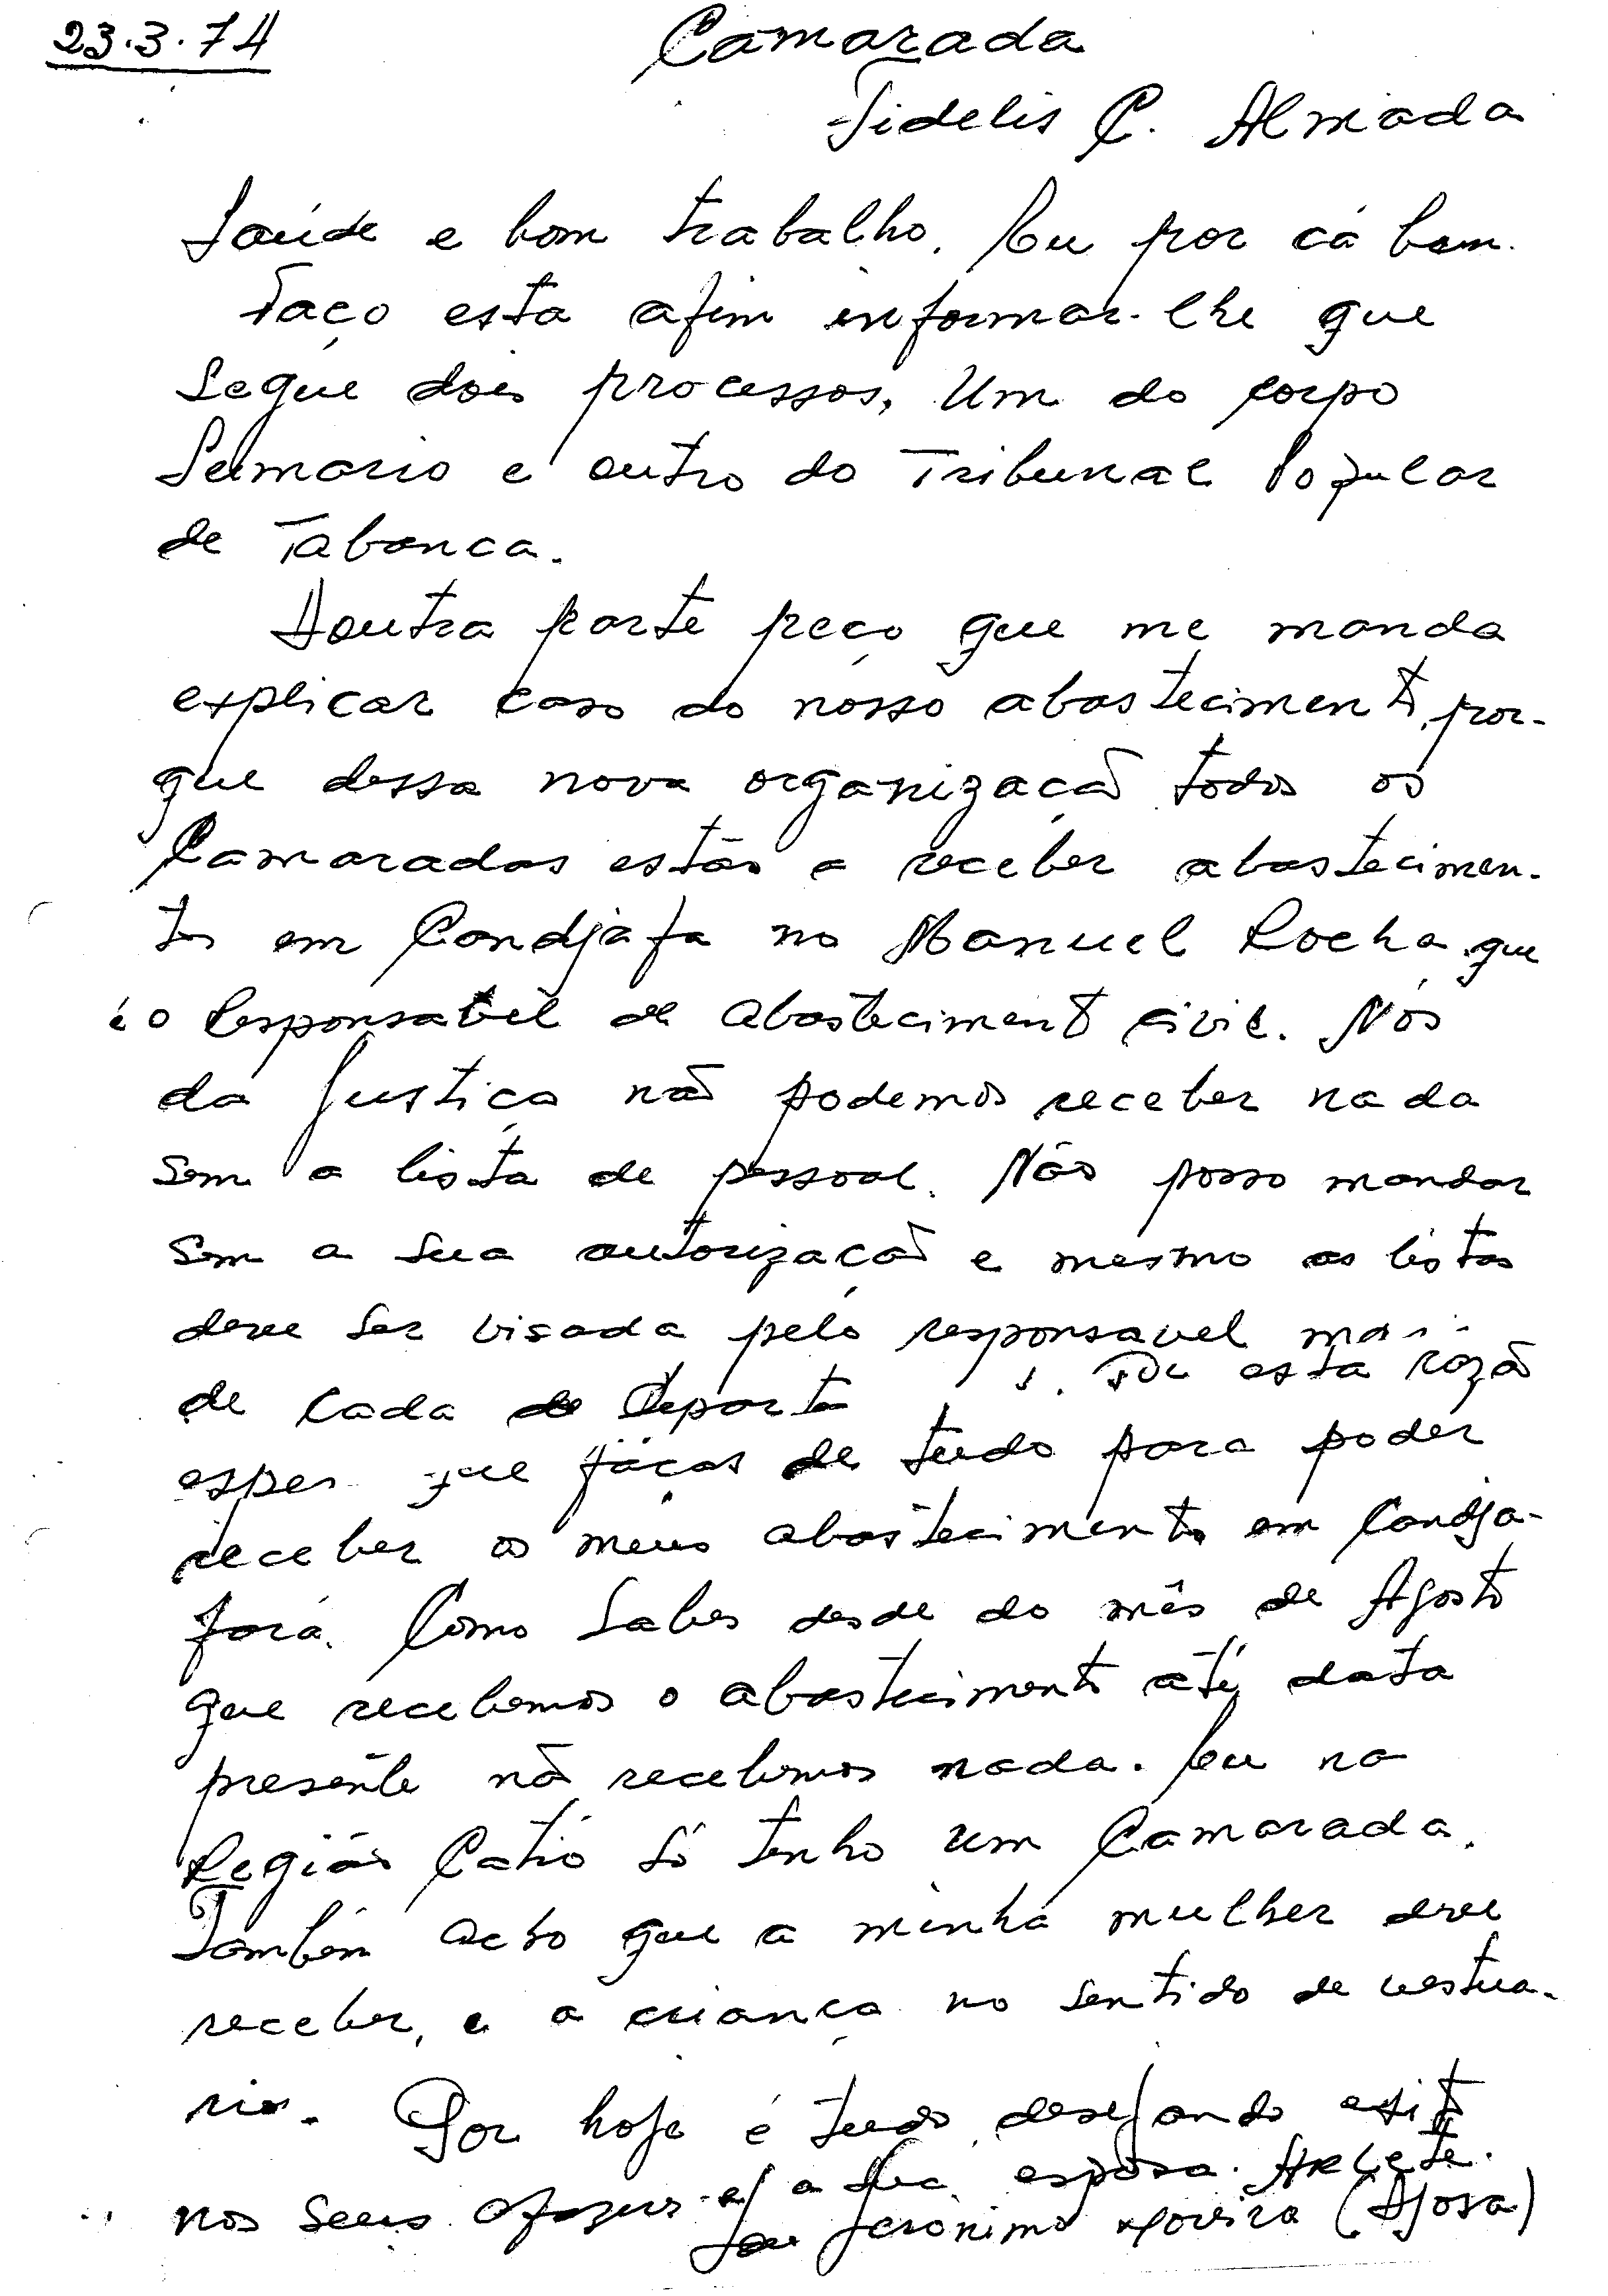 23.3.74
Camarada
Fidelis C. Almada
Saúde e bom trabalho. Eu por cá bem.
Faço esta afim informar-lhe que
segue dois processos, Um do corpo
Sumario e outro do Tribunal Popular
de Tabanca.
Doutra parte peço que me manda
explicar caso do nosso abastecimento, por-
que dessa nova organização todos os
Camaradas estão a receber abastecimen-
tos em Candjafa no Manuel Rocha que
é o Responsavel de abastecimento civil. Nós
da Justiça não podemos receber nada
sem a lista de pessoal. Não posso mandar
sem a sua autorização e mesmo as listas
deve ser visada pelo responsavel
de cada de Departa
esta razão
que faças de tudo para poder
receber os meus abastecimentos em Candja-
fará. Como Sabes desde do mês de Agosto
que recebemos o abastecimento até data
presente não recebemos nada. Eu na
Região Catió só tenho um Camarada.
Também acho que a minha mulher deve
receber, e a criança no sentido de vestua-
rio. Por hoje é tudo, desejando exito
nos seus afazeres e/ a sua esposa. Arlete.
Jerónimo (Ajosa)